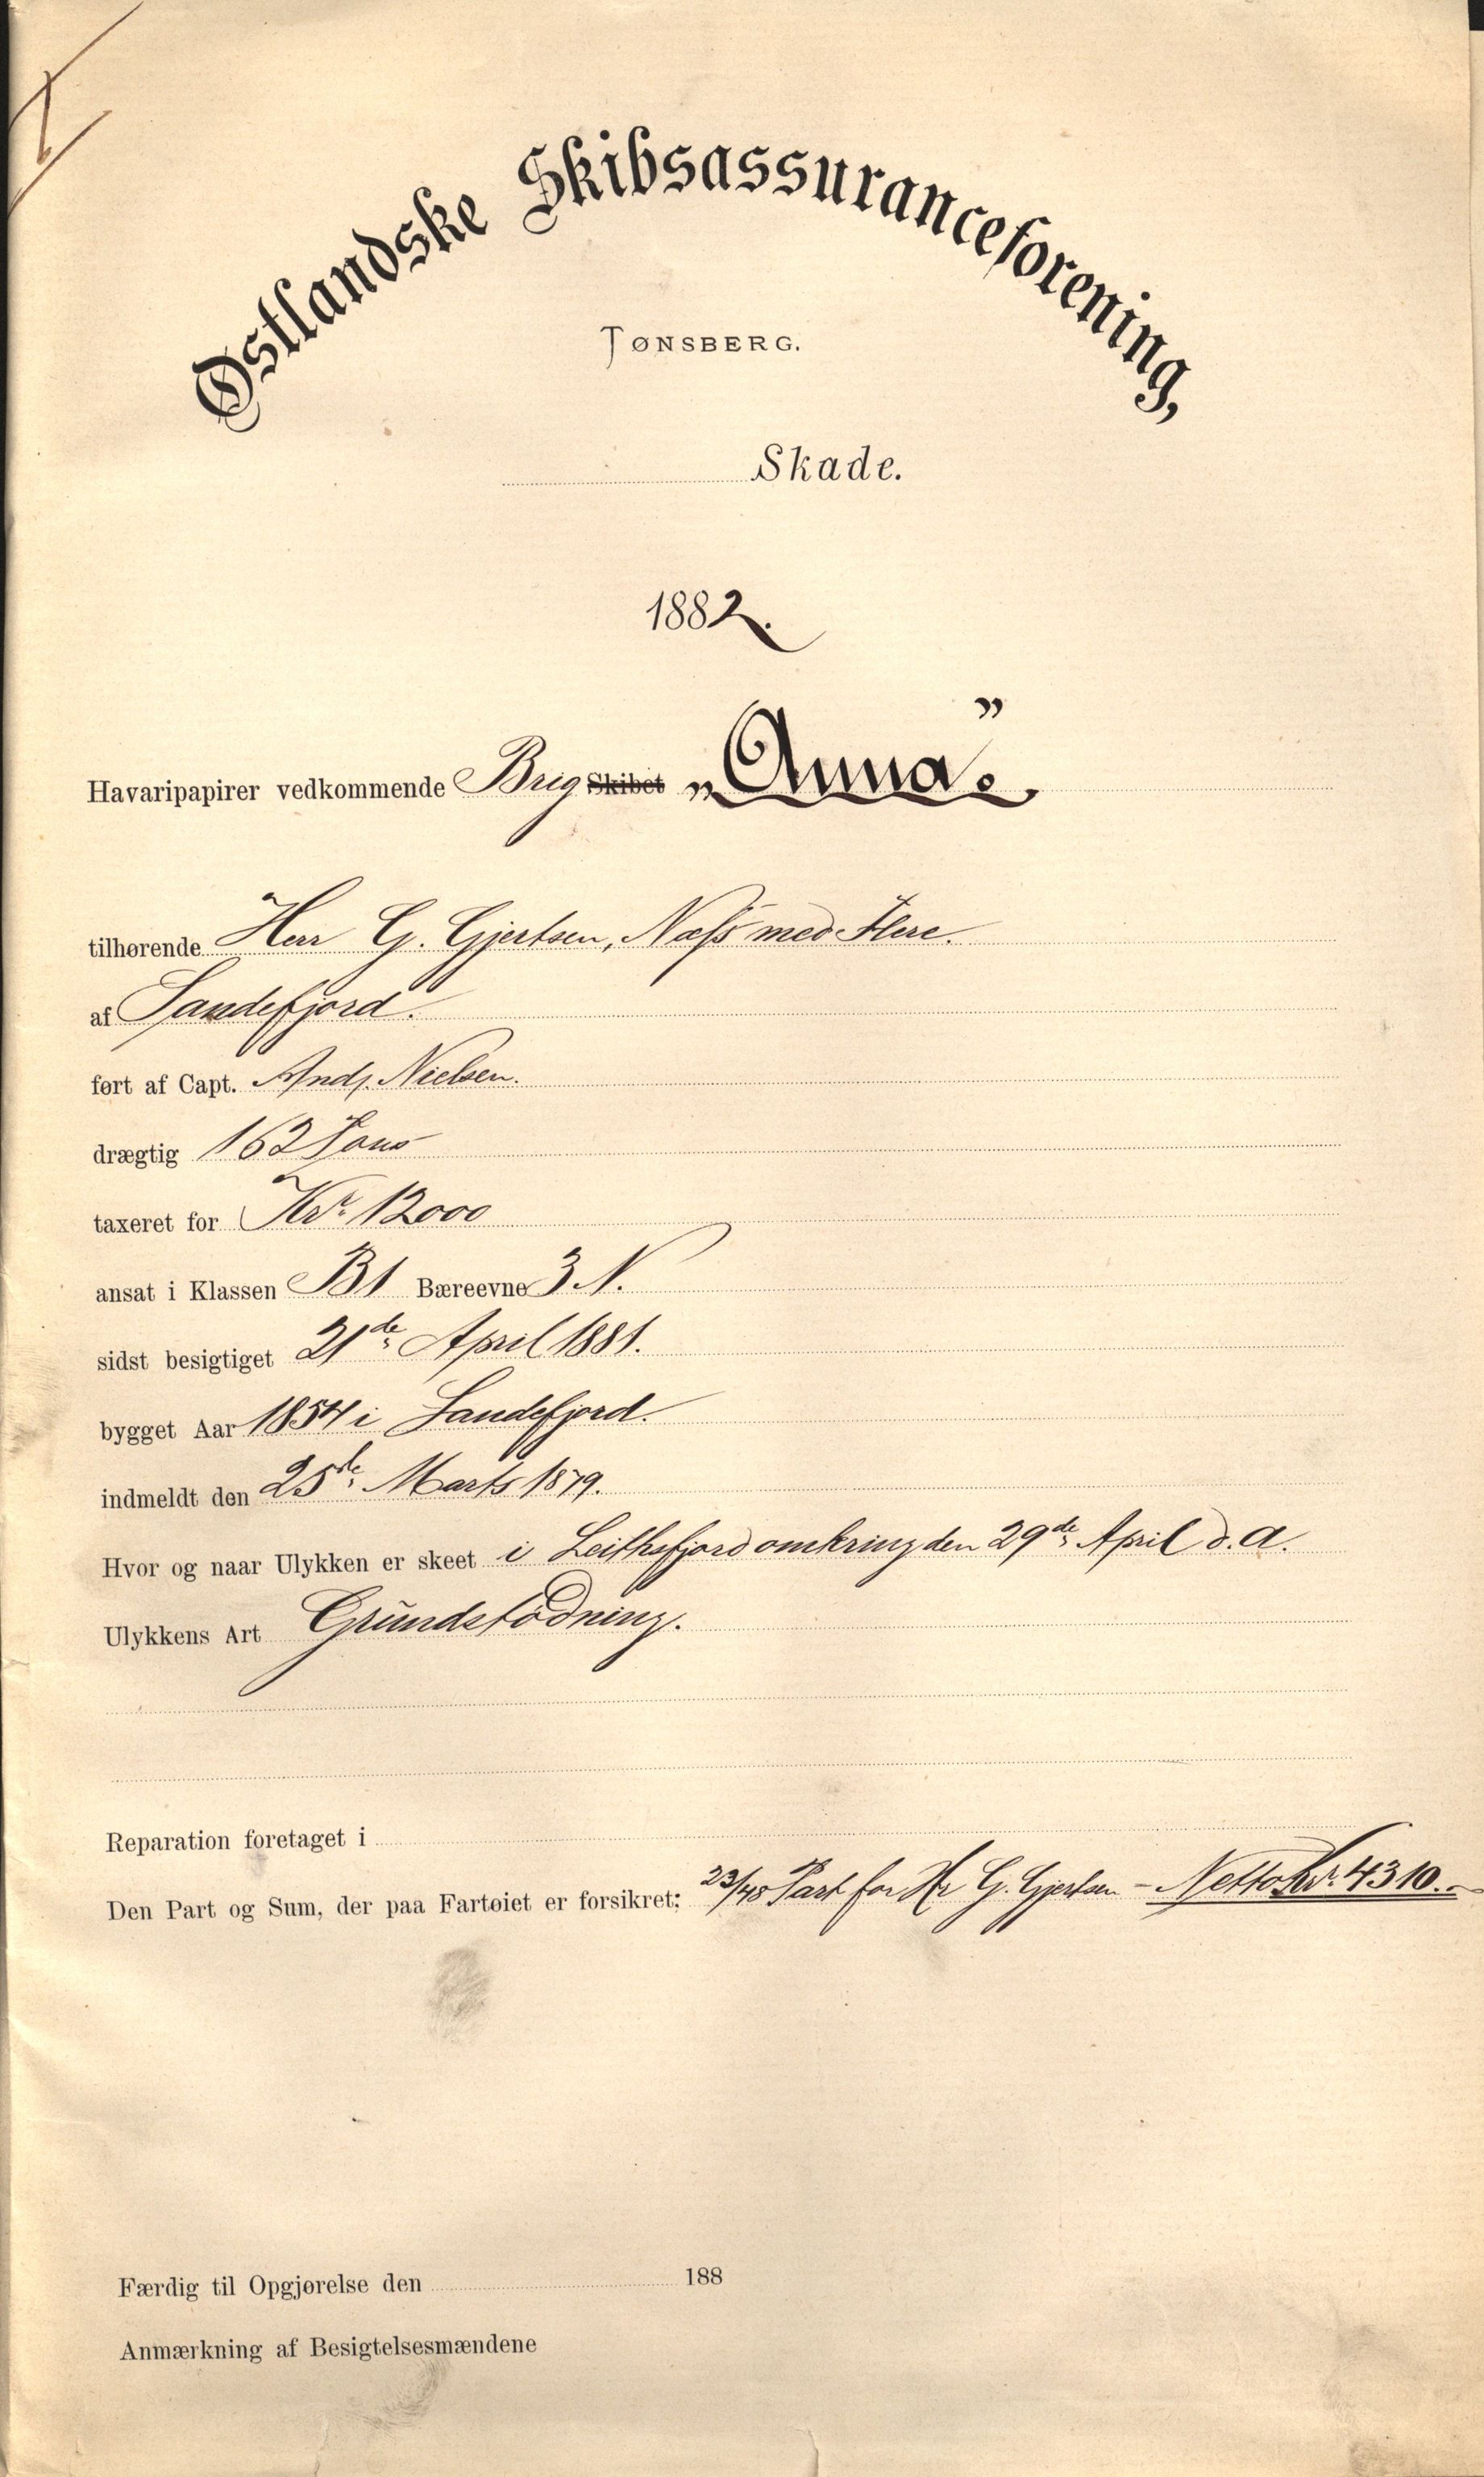 Østlandske Skibsassuranceforening,
TØNSBERG.
Skade.
1882.
Havaripapirer vedkommende Brig Skibet „Anna”
tilhørende Herr G. Gjertsen, Næss med Flere.
af Sandefjord.
ført af Capt. Ands. Nielsen.
drægtig 162 Tons
taxeret for Kr. 12000
ansat i Klassen B1 Bæreevne 3 N.
sidst besigtiget 21de April 1881.
bygget Aar 1854 i Sandefjord.
indmeldt den 25de Marts 1879.
Hvor og naar Ulykken er skeet i Leithsfjord omkring den 29de April d. A.
Ulykkens Art Grundstødning.
Reparation foretaget i
Den Part og Sum, der paa Fartøiet er forsikret: 23/48 Part for Hr G. Gjertsen - Netto Kr. 4310.-
Færdig til Opgjørelse den 188
Anmærkning af Besigtelsesmændene